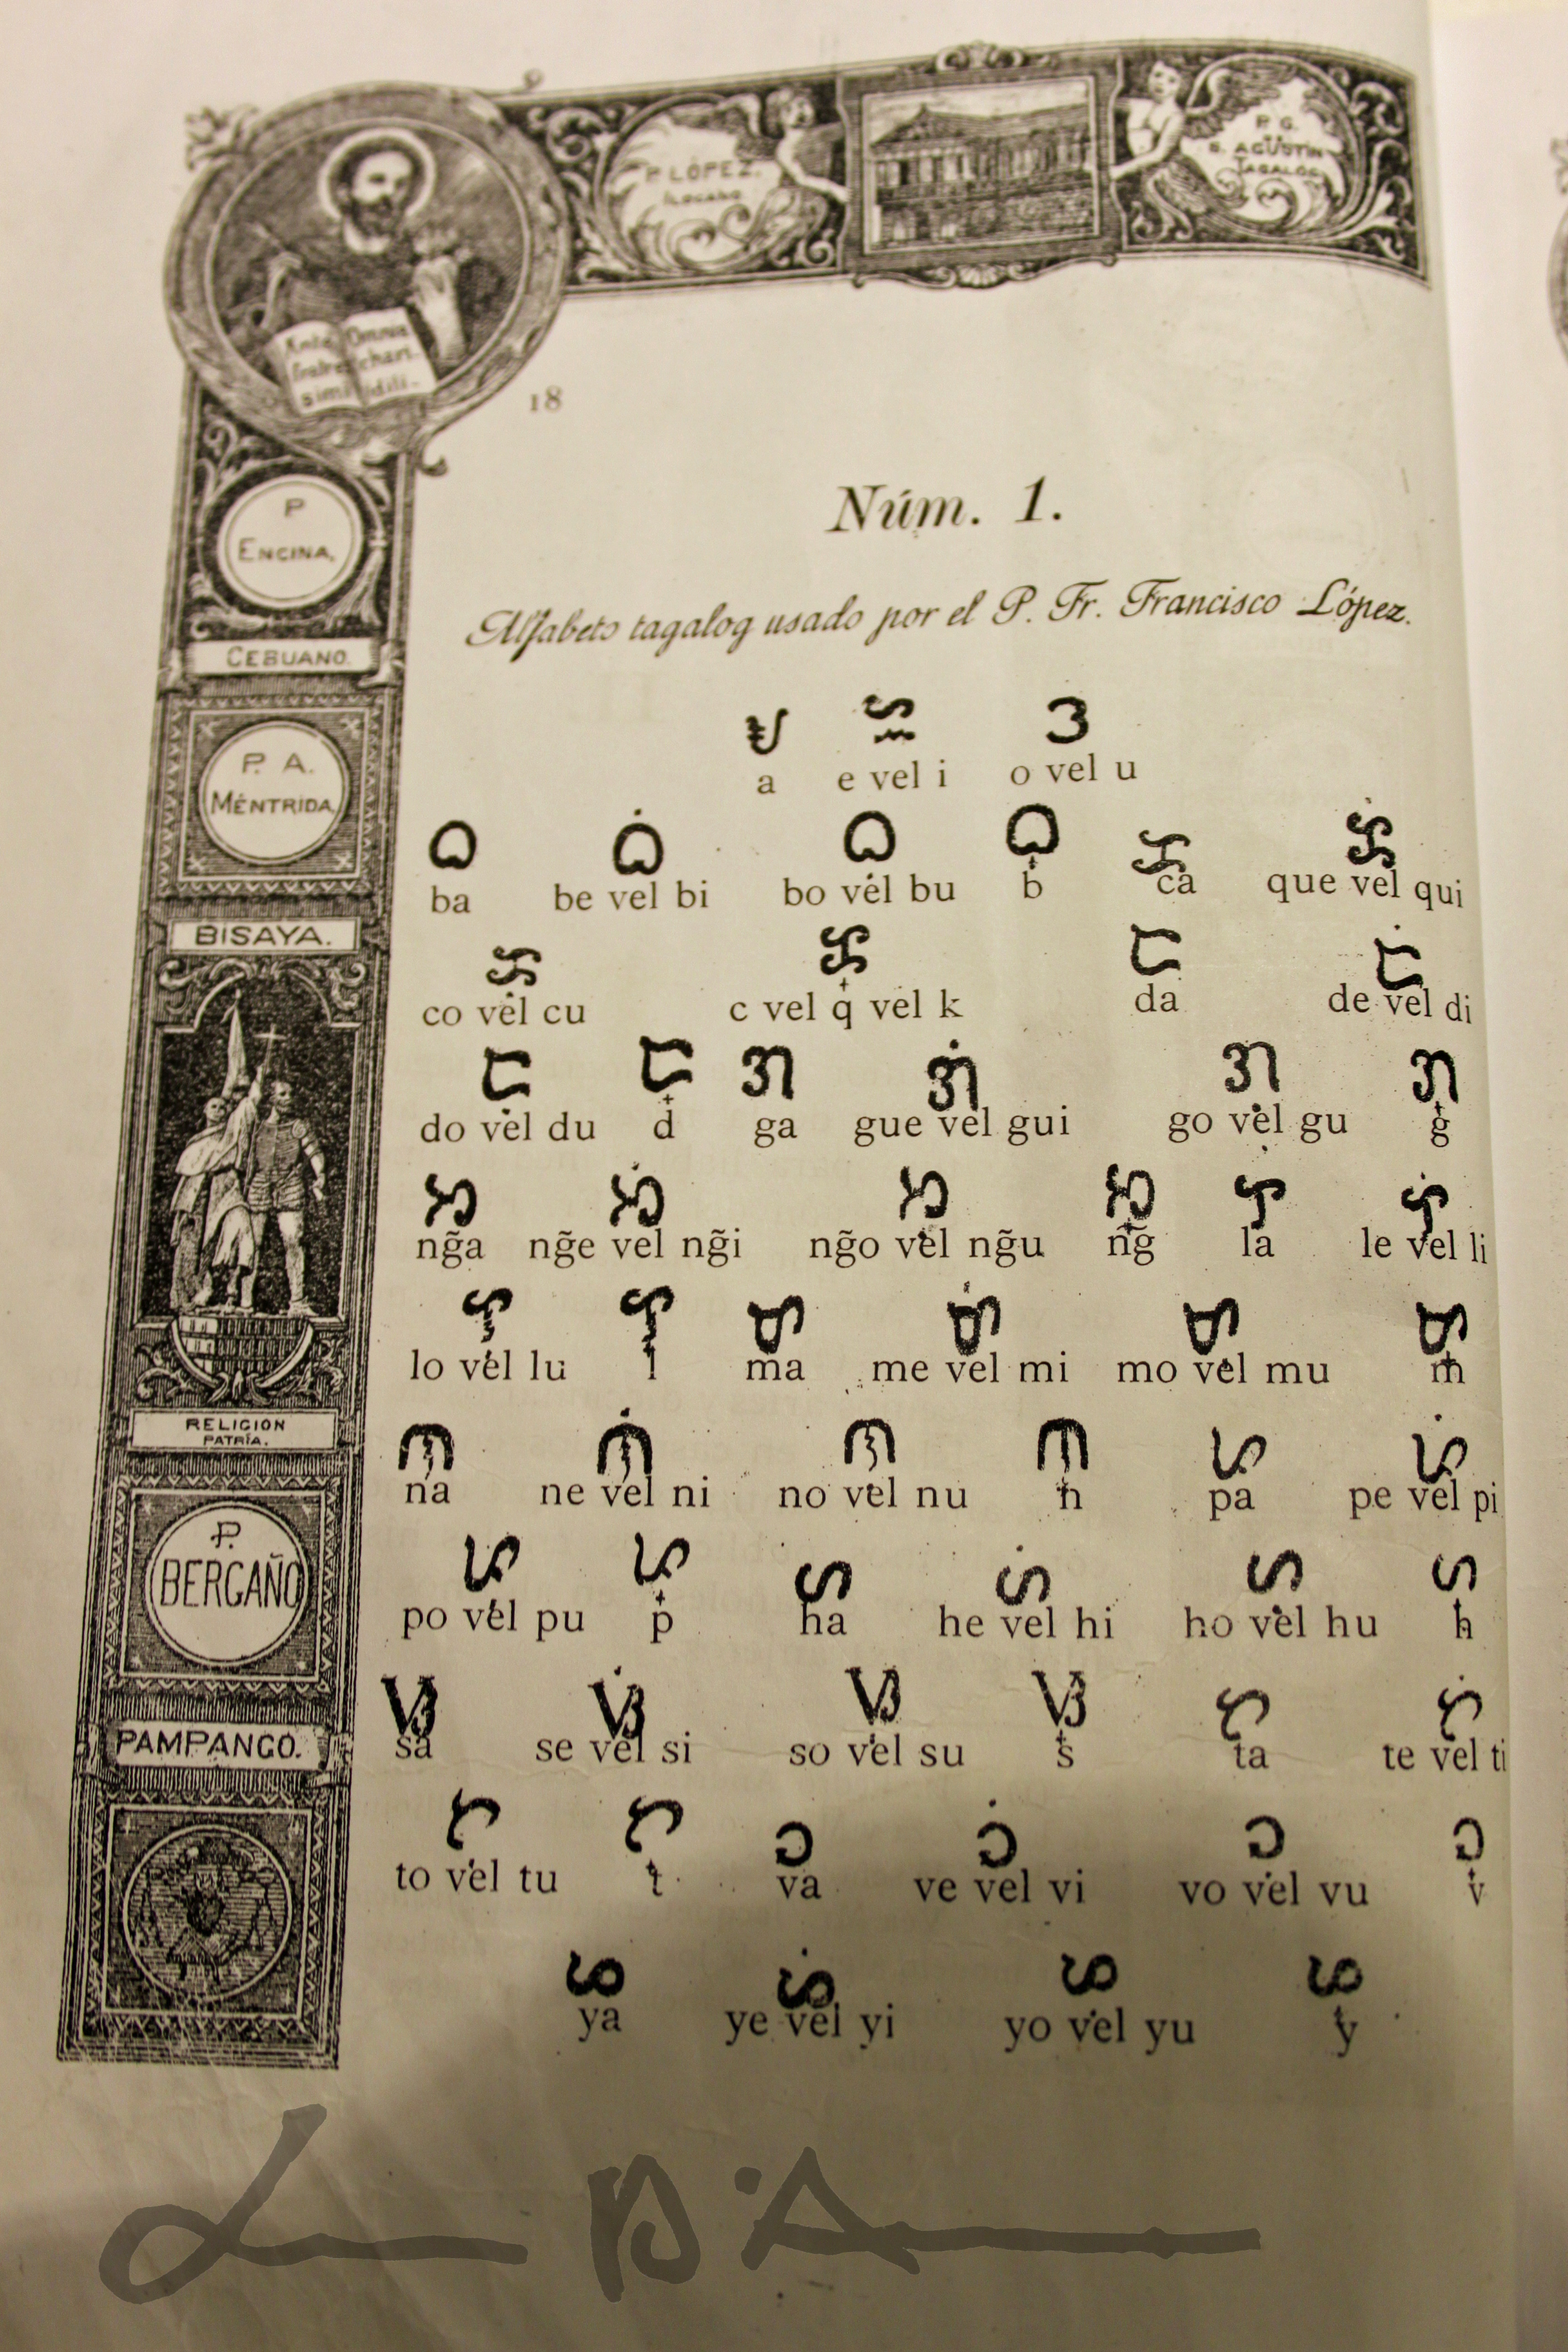 P. LÓPEZ.
ILOCANO
P. G.
S. AGUSTÍN
TAGALOG
Ante Omnia
fratres chari-
simi
18
P
ENCINA,
CEBUANO.
P. A.
MÉNTRIDA,
BISAYA.
RELIGION
PATRÍA.
P.
BERGAÑO
PAMPANGO.
Núm. 1.
Alfabeto tagalog usado por el P. Fr. Francisco López.
ᜀ ᜁ ᜂ
a e vel i o vel u
ᜊ ᜊᜒ ᜊᜓ ᜊ᜔ ᜃ ᜃᜒ
ba be vel bi bo vel bu b ca que vel qui
ᜃᜓ ᜃ᜔ ᜇ ᜇᜒ
co vel cu c vel q vel k da de vel di
ᜇᜓ ᜇ᜔ ᜄ ᜄᜒ ᜄᜓ ᜄ᜔
do vel du d ga gue vel gui go vel gu g
ᜅ ᜅᜒ ᜅᜓ ᜅ᜔ ᜎ ᜎᜒ
ng̃a ng̃e vel ng̃i ng̃o vel ng̃u ng̃ la le vel li
ᜎᜓ ᜎ᜔ ᜋ ᜋᜒ ᜋᜓ ᜋ᜔
lo vel lu l ma me vel mi mo vel mu m
ᜈ ᜈᜒ ᜈᜓ ᜈ᜔ ᜉ ᜉᜒ
na ne vel ni no vel nu n pa pe vel pi
ᜉᜓ ᜉ᜔ ᜑ ᜑᜒ ᜑᜓ ᜑ᜔
po vel pu p ha he vel hi ho vel hu h
ᜐ ᜐᜒ ᜐᜓ ᜐ᜔ ᜆ ᜆᜒ
sa se vel si so vel su s ta te vel ti
ᜆᜓ ᜆ᜔ ᜏ ᜏᜒ ᜏᜓ ᜏ᜔
to vel tu t va ve vel vi vo vel vu v
ᜌ ᜌᜒ ᜌᜓ ᜌ᜔
ya ye vel yi yo vel yu y